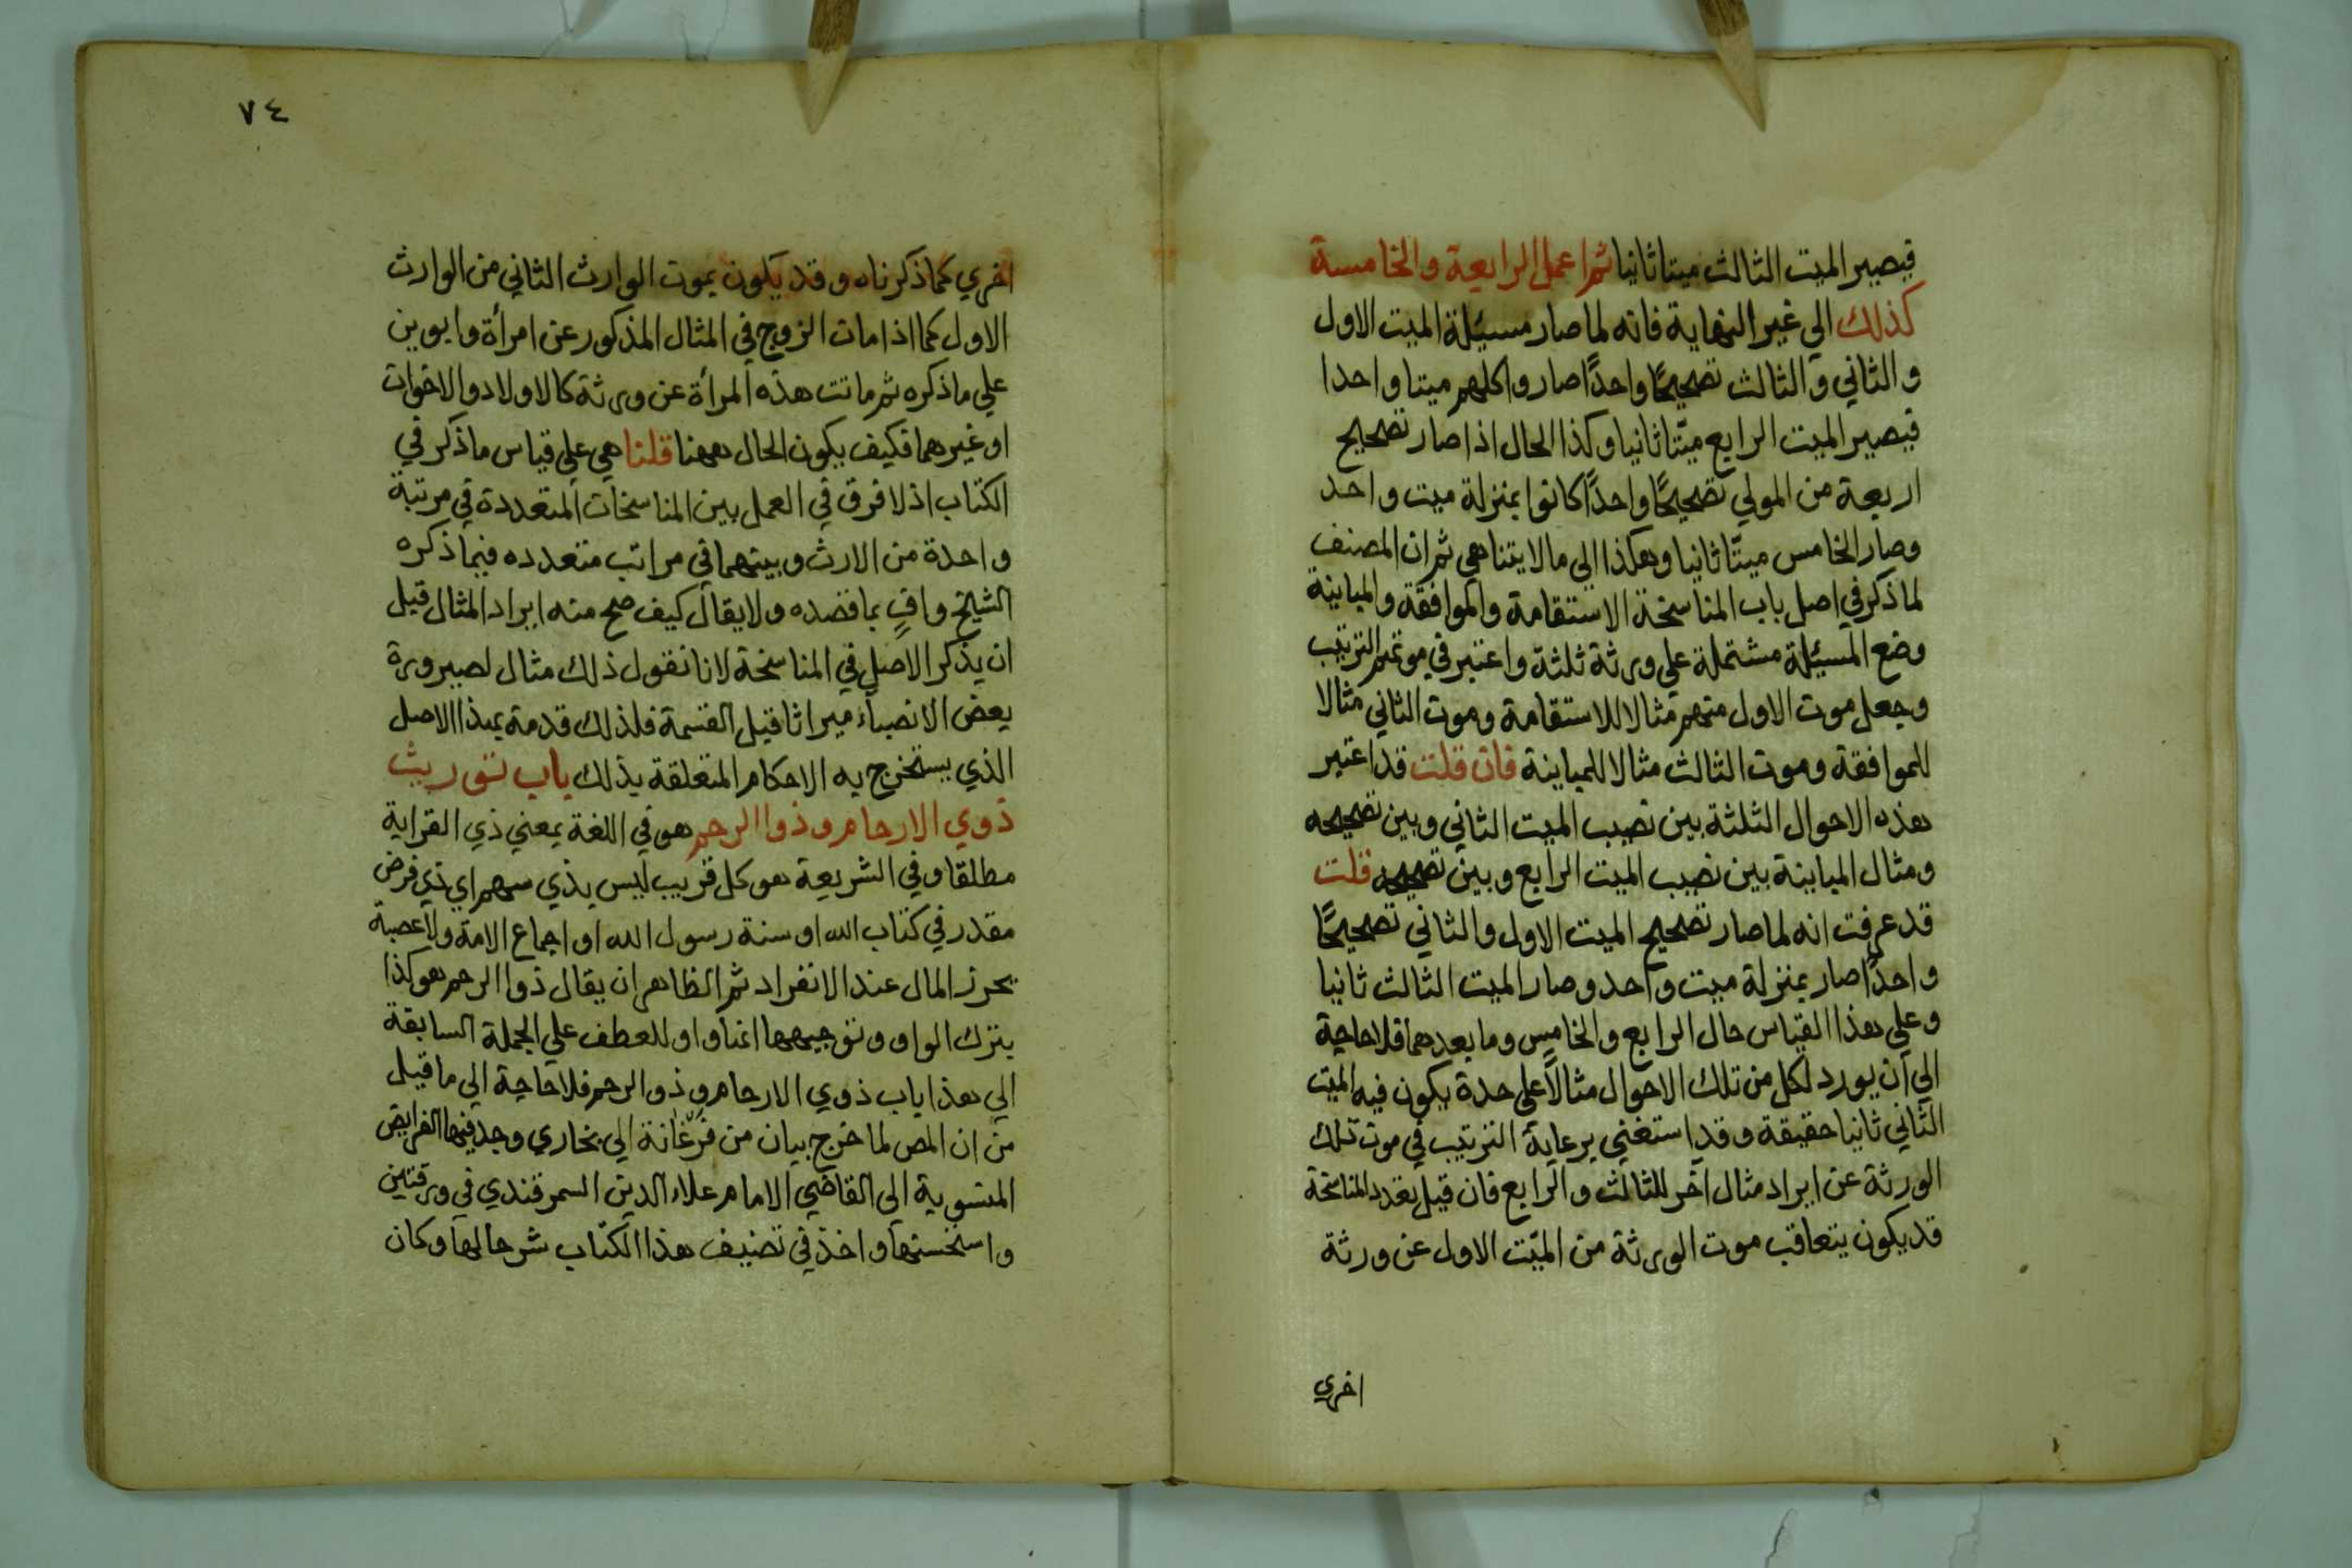 فيصير الميت الثالث ميتا ثانيا ثم اعمل الرابعة والخامسة
كذلك الي غير النهاية فانه لما صار مسئلة الميت الاول
والثاني والثالث تصحيحًا واحدًا صاروا كلهم ميتا واحدا
فيصير الميت الرابع ميّتا ثانيا وكذا الحال اذا صار تصحيح
اربعة من الموتي تصحيحًا واحدًا كانوا بمنزلة ميت واحد
وصار الخامس ميتّا ثانيا وهكذا الي ما لا يتناهي ثم ان المصنف
لما ذكر في اصل باب المناسخة الاستقامة والموافقة والمباينة
وضع المسئلة مشتملة علي ورثة ثلثة واعتبر في موتهم الترتيب
وجعل موت الاول منهم مثالا للاستقامة وموت الثاني مثالا
للموافقة وموت الثالث مثالا للمباينة فان قلت قد اعتبر
هذه الاحوال الثلثة بين نصيب الميت الثاني وبين تصحيحه
ومثال المباينة بين نصيب الميت الرابع وبين تصحيحه قلت
قد عرفت انه لما صار تصحيح الميت الاول والثاني تصحيحًا
واحدًا صار بمنزلة ميت واحد وصار الميت الثالث ثانيا
وعلي هذا القياس حال الرابع والخامس وما بعدهما فلا حاجة
الي ان يورد لكل من تلك الاحوال مثالاً على حدة يكون فيه الميت
الثاني ثانيا حقيقة وقد استغني برعاية الترتيب في موت تلك
الورثة عن ايراد مثال اخر للثالث والرابع فان قيل تعدد المناسخة
قد يكون بتعاقب موت الورثة من الميّت الاول عن ورثة
اخري
٧٤
اخري كما ذكرناه وقد يكون بموت الوارث الثاني من الوارث
الاول كما اذا مات الزوج في المثال المذكور عن امرأة وابوين
علي ما ذكره ثم ماتت هذه المرأة عن ورثة كالاولاد والاخوات
او غيرهما فكيف يكون الحال ههنا قلنا هي علي قياس ما ذكر في
الكتاب اذ لا فرق في العمل بين المناسخات المتعددة في مرتبة
واحدة من الارث وبينهما في مراتب متعدده فيما ذكره
الشيخ وافٍ بما قصده ولا يقال كيف صح منه ايراد المثال قبل
ان يذكر الاصل في المناسخة لانا نقول ذلك مثال لصيرورة
بعض الانصباء ميراثا قبل القسمة فلذلك قدمة بهذا الاصل
الذي يستخرج به الاحكام المتعلقة بذلك باب توريث
ذوي الارحام وذوا الرحم هو في اللغة بمعني ذي القرابة
مطلقا وفي الشريعة هو كل قريب ليس بذي سهم اي ذي فرض
مقدر في كتاب الله او سنة رسول الله او اجماع الامة ولا عصبة
يحرز المال عند الانفراد ثم الظاهر ان يقال ذوا الرحم هو كذا
بترك الواو وتوجيهها انها واو للعطف علي الجملة السابقة
الي هذا باب ذوي الارحام وذو الرحم فلا حاجة الي ما قيل
من ان المص لما خرج بيان من فرغانة الي بخاري وجد فيها الفرايض
المنسوبة الى القاضي الامام علاء الدين السمرقندي في ورقتين
واستحسنها واخذ في تصنيف هذا الكتاب شرحا لها وكان